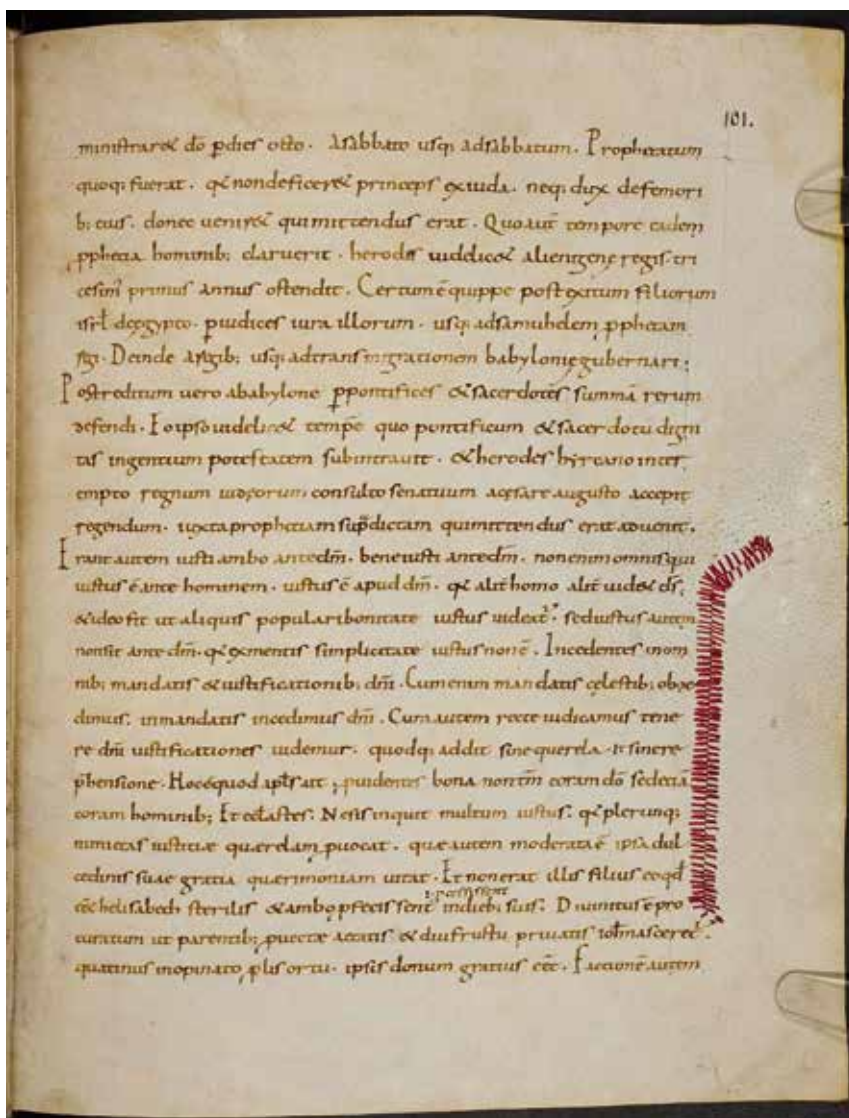 101.
ministrar& dō ꝑ dies octo. Asabbato usq; adsabbatum. Prophetatum
quoq; fuerat. qđ nondeficer& princeps exiuda. neq; dux defemori
b; eius. donec uenir& quimittendus erat. Quo aut̄ tempore eadem
ꝓphetia hominib; claruerit. herodis uidelic& alienigenę regis tri
cesim' primus annus ostendit. Certum ē quippe postexitum filiorum
isrl̄ deęgypto. ꝑiudices iura illorum. usq; adsamuhelem ꝓphetam
regi. Deinde aregib; usq; adtransmigrationem babylonię gubernari;
Postreditum uero ababylone ꝑpontifices & sacerdotes summā rerum
defendi. Eo ipso uidelic& temꝑe quo pontificum & sacerdotū digni
tas ingentium potestatem subintrauit. & herodes hyrcano inter
empto regnum iudęorum consulto senatuum acęsare augusto accepit
regendum. iuxta prophetiam sup̄dictam quimittendus erat aduenit.
Erant autem iusti ambo antedm̄. bene iusti antedm̄. nonenim omnis qui
iustus ē ante hominem. iustus ē apud dm̄. qđ alit̄ homo alit̄ uid& ds̄;
& ideo fit ut aliquis popularibonitate iustus uideat̄. sed iustus autem
nonsit ante dm̄. qđ exmentis simplicitate iustus non ē. Incedentes inom
nib; mandatis & iustificationib; dni. Cum enim mandatis cęlestib; oboe
dimus. inmandatis incedimus dni. Cum autem recte iudicamus tene
re dni iustificationes uidemur. quodq; addit sine querela. & sine re
p̄hensione. Hoc ē quod apls̄ ait; ꝓuidentes bona non tm̄ coram dō sed etiā
coram hominib; Et eccl̄astes. Nesis inquit multum iustus. qđ plerunq;
nimietas iustitiæ querelam ꝓuocat. quæ autem moderata ē ipsa dul
cedinis suae gratia querimoniam uitat. Et nonerat illis filius eo qđ
eēt helisabeth sterilis & ambo ꝓfecissent indieb; suis. Diuinitus ē pro
i. ꝓcessissent
curatum ut parentib; ꝓuectæ aetatis & diu fructu priuatis ioh̄ nascer&.
quatinus inopinato ꝓlis ortu. ipsis donum gratius eēt. Factum ē autem